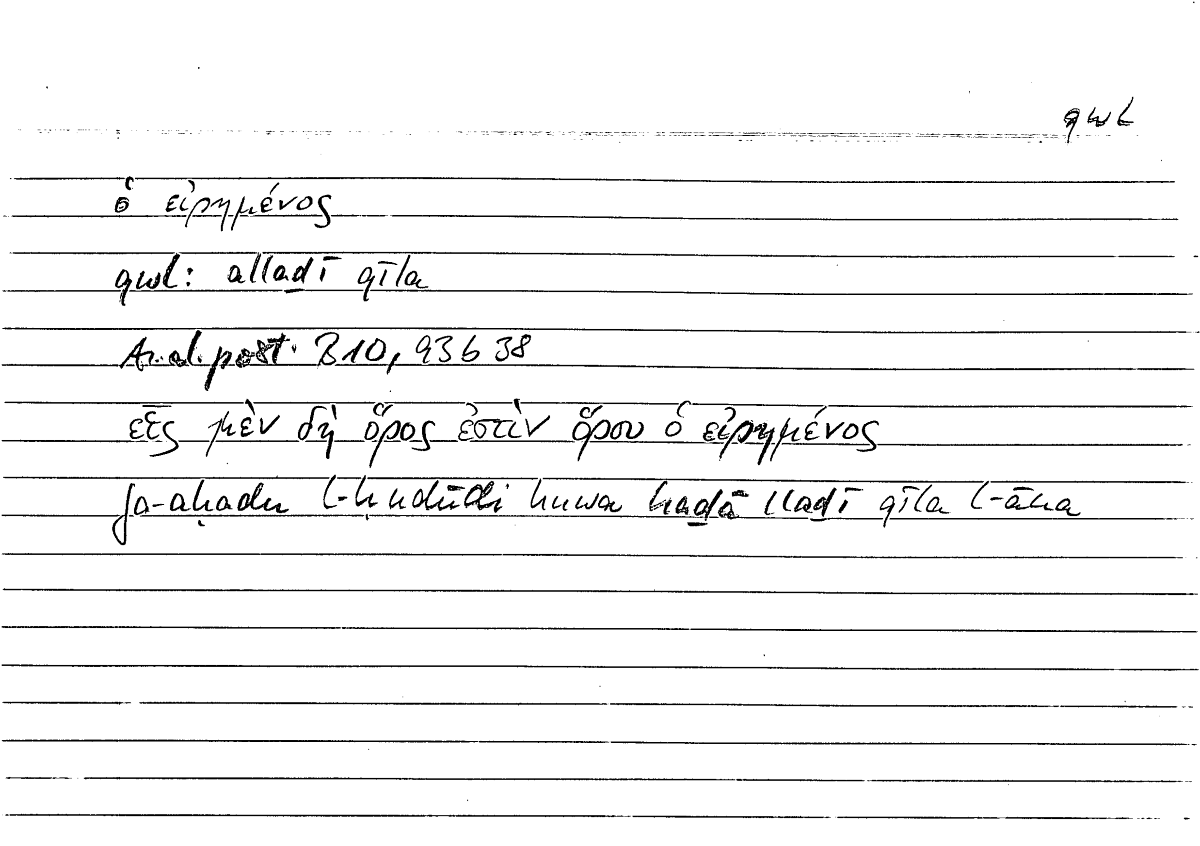 qwl
ὁ εἰρημένος
qwl: allaḏī qīla
An. post. B10, 93b38
εἷς μὲν δὴ ὅρος ἐστὶν ὅρου ὁ εἰρημένος
fa-aḥadu l-ḥudūdi huwa haḏā llaḏī qīla l-āna